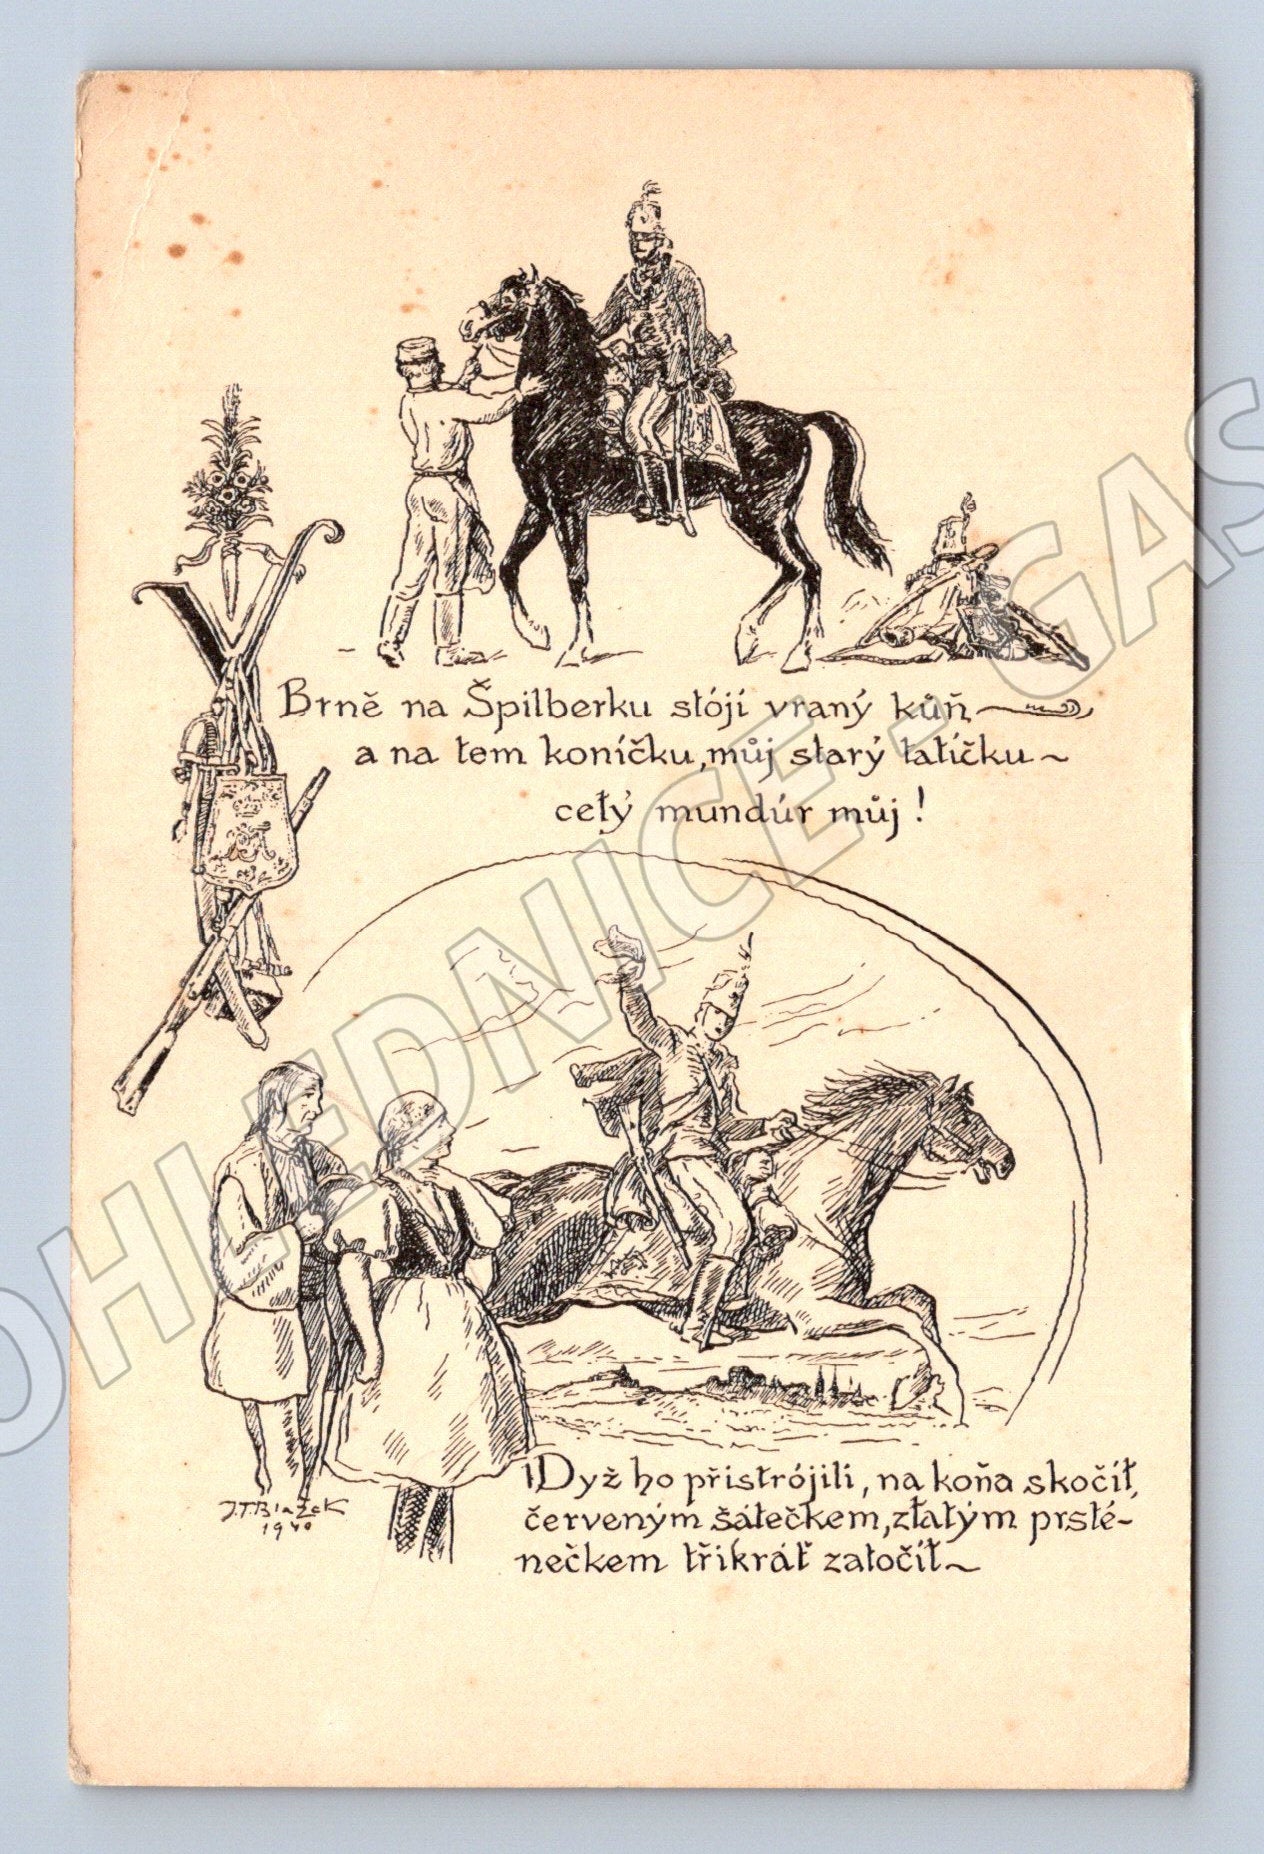 Brně na Špilberku stójí vraný kůň
a na tem koníčku, můj starý tatíčku ~
cełý mundúr můj!
Dyž ho přistrójili, na koňa skočił,
červeným šátečkem, złatým prsté-
nečkem třikrát zatočił ~
J.T.Blažek
1940
POHLEDNICE - GAS